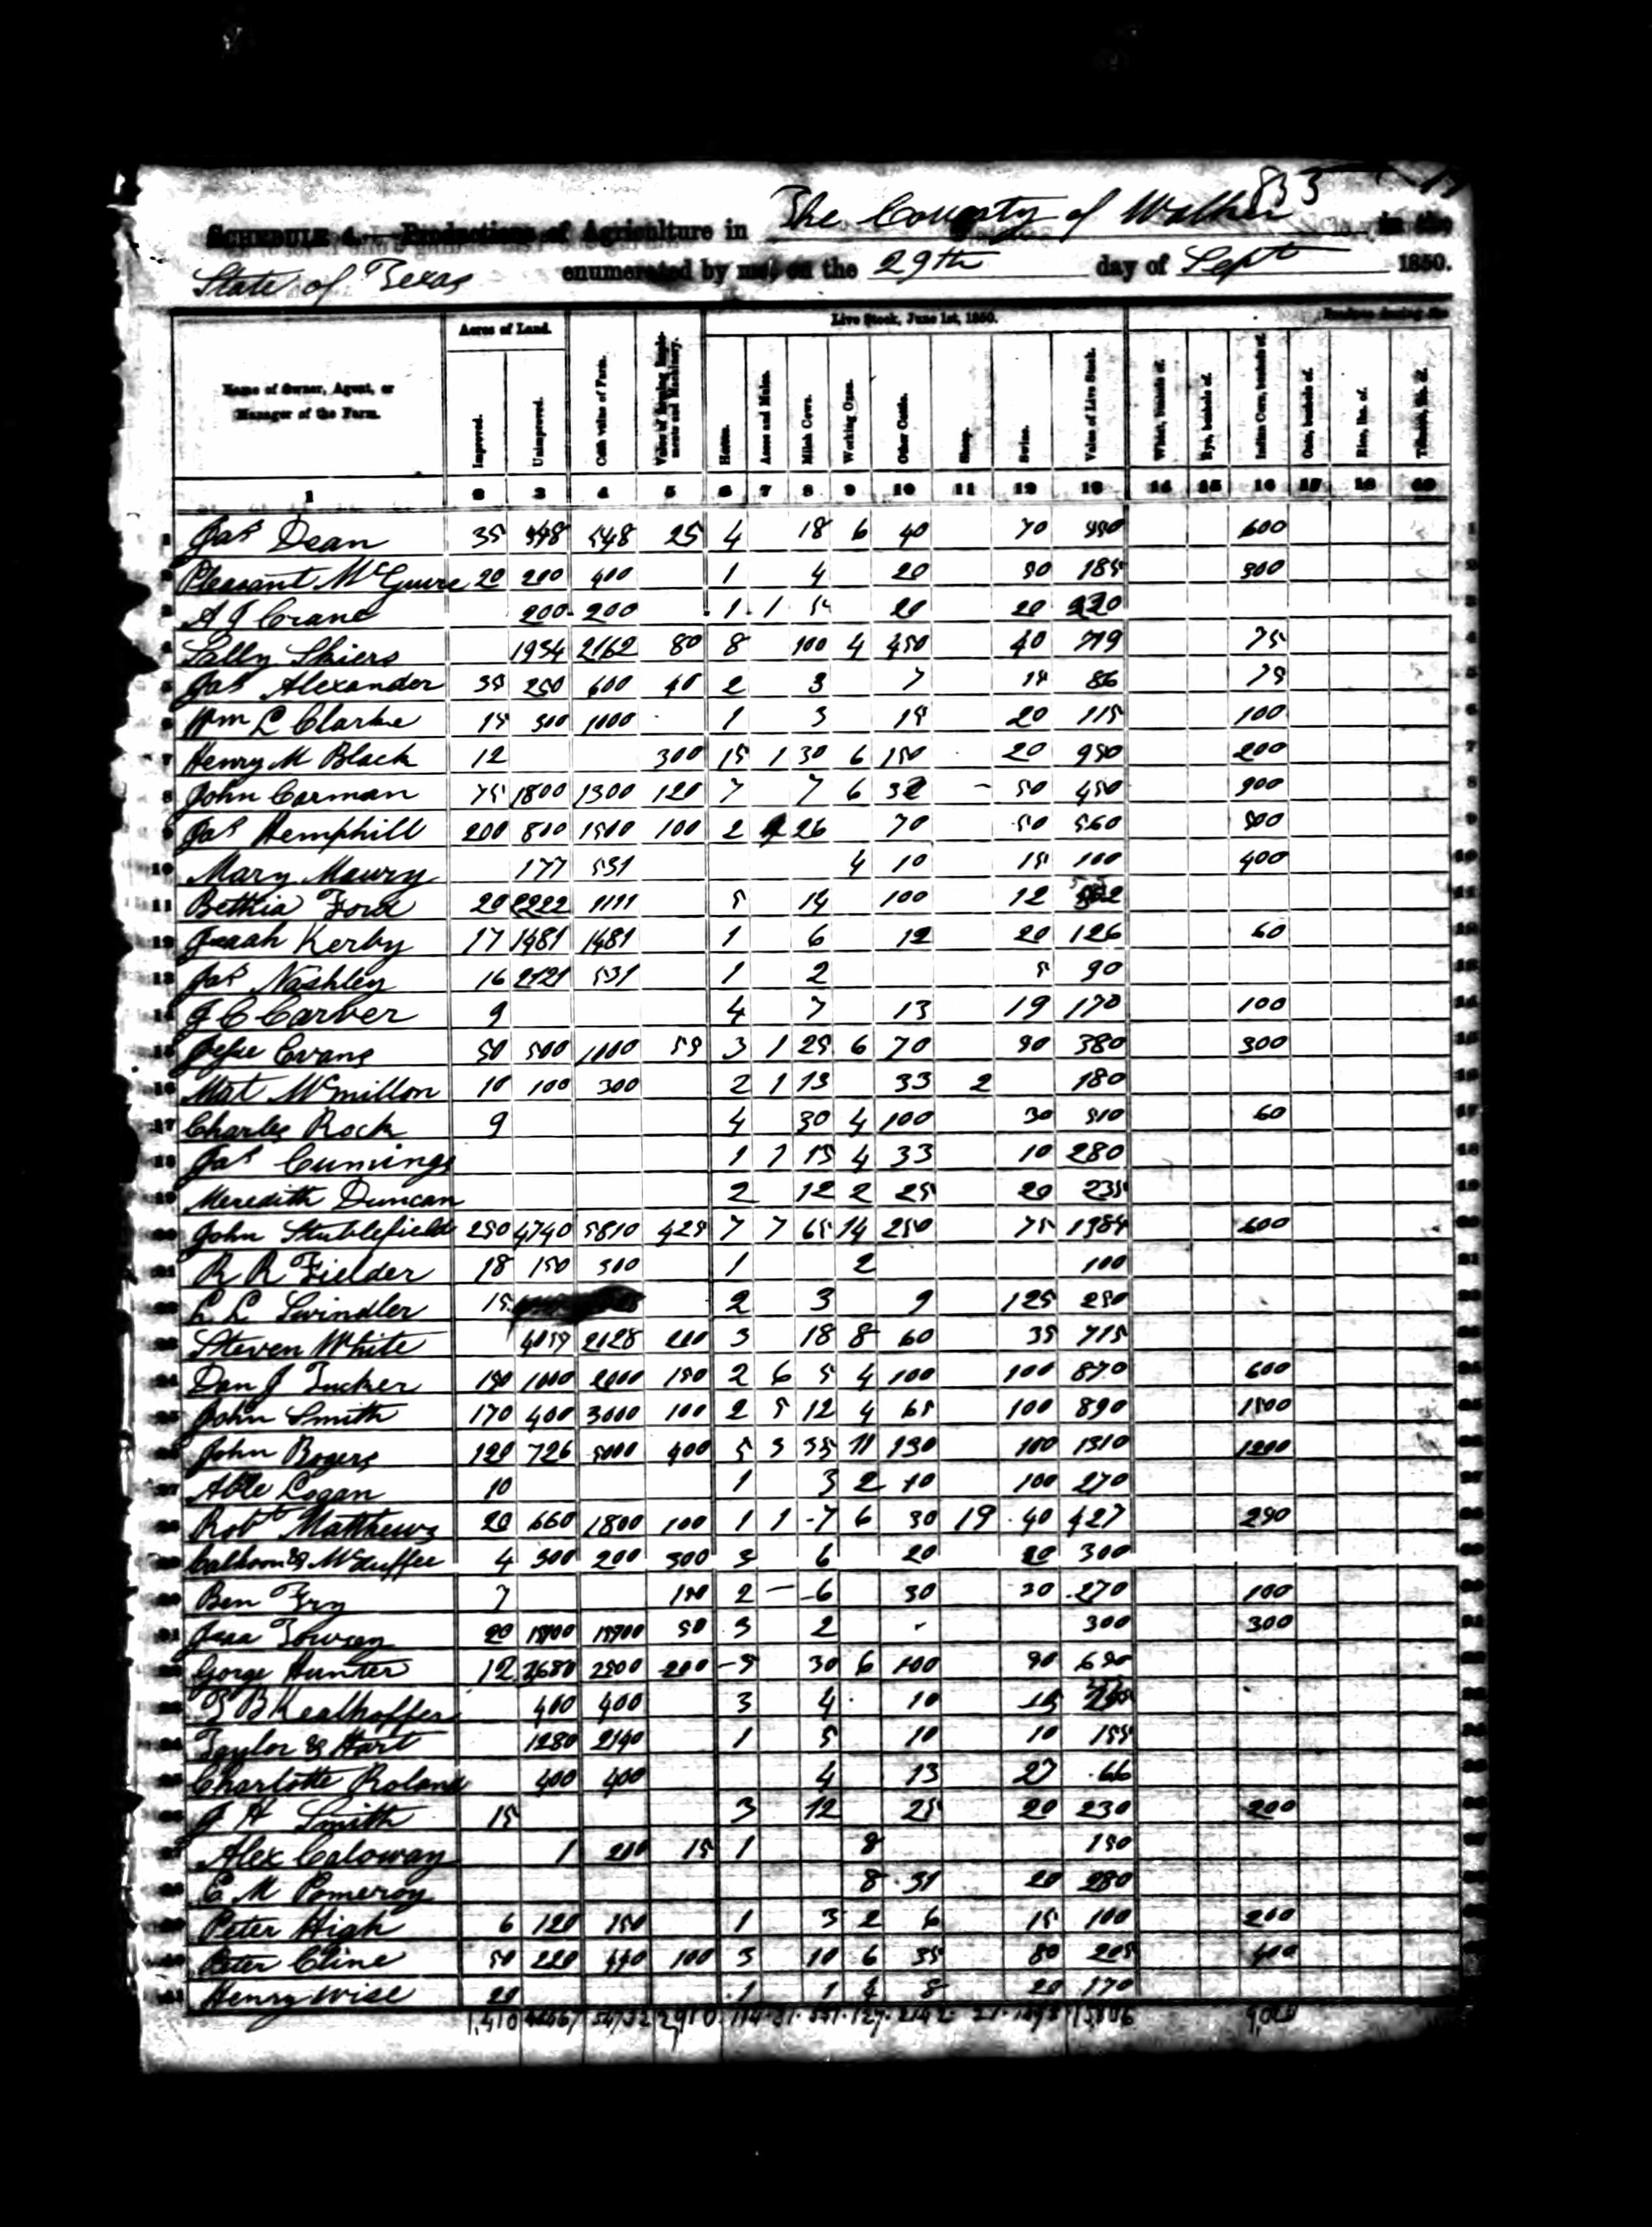 833
SCHEDULE 4.—Productions of Agriculture in The County of Walker in the
State of Texas enumerated by me, on the 29th day of Sept 1850.
Acres of Land. Live Stock, June 1st, 1850. Produce during the
Name of Owner, Agent, or Manager of the Farm. Improved. Unimproved. Cash value of Farm. Value of farming Implements and Machinery. Horses. Asses and Mules. Milch Cows. Working Oxen. Other Cattle. Sheep. Swine. Value of Live Stock. Wheat, bushels of. Rye, bushels of. Indian Corn, bushels of. Oats, bushels of. Rice, lbs. of. Tobacco, lbs. of.
1 2 3 4 5 6 7 8 9 10 11 12 13 14 15 16 17 18 19
Jas Dean 35 548 25 4 18 6 40 70 600
Pleasant McGuire 20 200 400 1 4 20 185
A J Crane 200 200 1 1 20 20 220
Sally Shiers 1954 2162 80 8 100 4 450 40 719 75
Jas Alexander 35 250 600 40 2 3 7 86 75
Wm L Clarke 15 500 1000 1 3 15 20 115 100
Henry M Black 12 300 15 1 30 6 150 20 950 200
John Carman 75 1800 1300 120 7 7 6 32 50 450 900
Jas Hemphill 200 800 1500 100 2 26 70 50 560 500
Mary Maury 177 531 4 10 15 100 400
Bethia Ford 20 2222 1111 5 14 100 12
Isaah Kerby 17 1481 1481 1 6 12 20 126 60
Jas Nashley 16 2121 531 1 2 5 90
J C Carver 9 4 7 13 19 170 100
Jesse Evans 50 500 1000 55 3 1 25 6 70 90 380 300
Mat McMillon 10 100 300 2 1 13 33 2 180
Charles Rock 9 4 30 4 100 30 510 60
Jas Cumings 1 1 15 4 33 10 280
Meredith Duncan 2 12 2 25 20 235
John Stubblefield 250 4740 5810 425 7 7 65 14 250 75 1984 600
R R Fielder 18 150 300 1 2 100
L L Swindler 15 2 3 9 125 250
Steven White 4059 2128 200 3 18 8 60 35 715
Dan J Tucker 150 1000 2000 150 2 6 5 4 100 100 870 600
John Smith 170 400 3000 100 2 5 12 4 65 100 890 1500
John Rogers 120 726 5000 400 5 3 35 11 130 100 1310 1200
Able Logan 10 1 3 2 10 100 270
Robt Matthews 20 660 1800 100 1 1 7 6 30 19 40 427 250
Calhoon & McDuffee 4 300 200 300 3 6 20 20 300
Ben Fry 7 150 2 — 6 30 30 270 100
Towsen 20 50 3 2 300 300
Gorge Hunter 12 2680 2500 200 5 30 6 100 90 690
T B Kealhoffer 400 400 3 4 10 15
Taylor & Hart 1280 2140 1 5 10 10 155
Charlotte Roland 400 400 4 13 27 66
J H Smith 15 3 12 25 20 230 200
Alex Caloway 1 200 15 1 8 150
E M Pomeroy 8 31 20 280
Peter High 6 120 150 1 3 2 6 15 100 200
Peter Cline 50 220 440 100 3 10 6 35 80 205 400
Henry Wise 20 1 1 4 8 20 170
1,410 2,910 114 127 2142 21 9,0